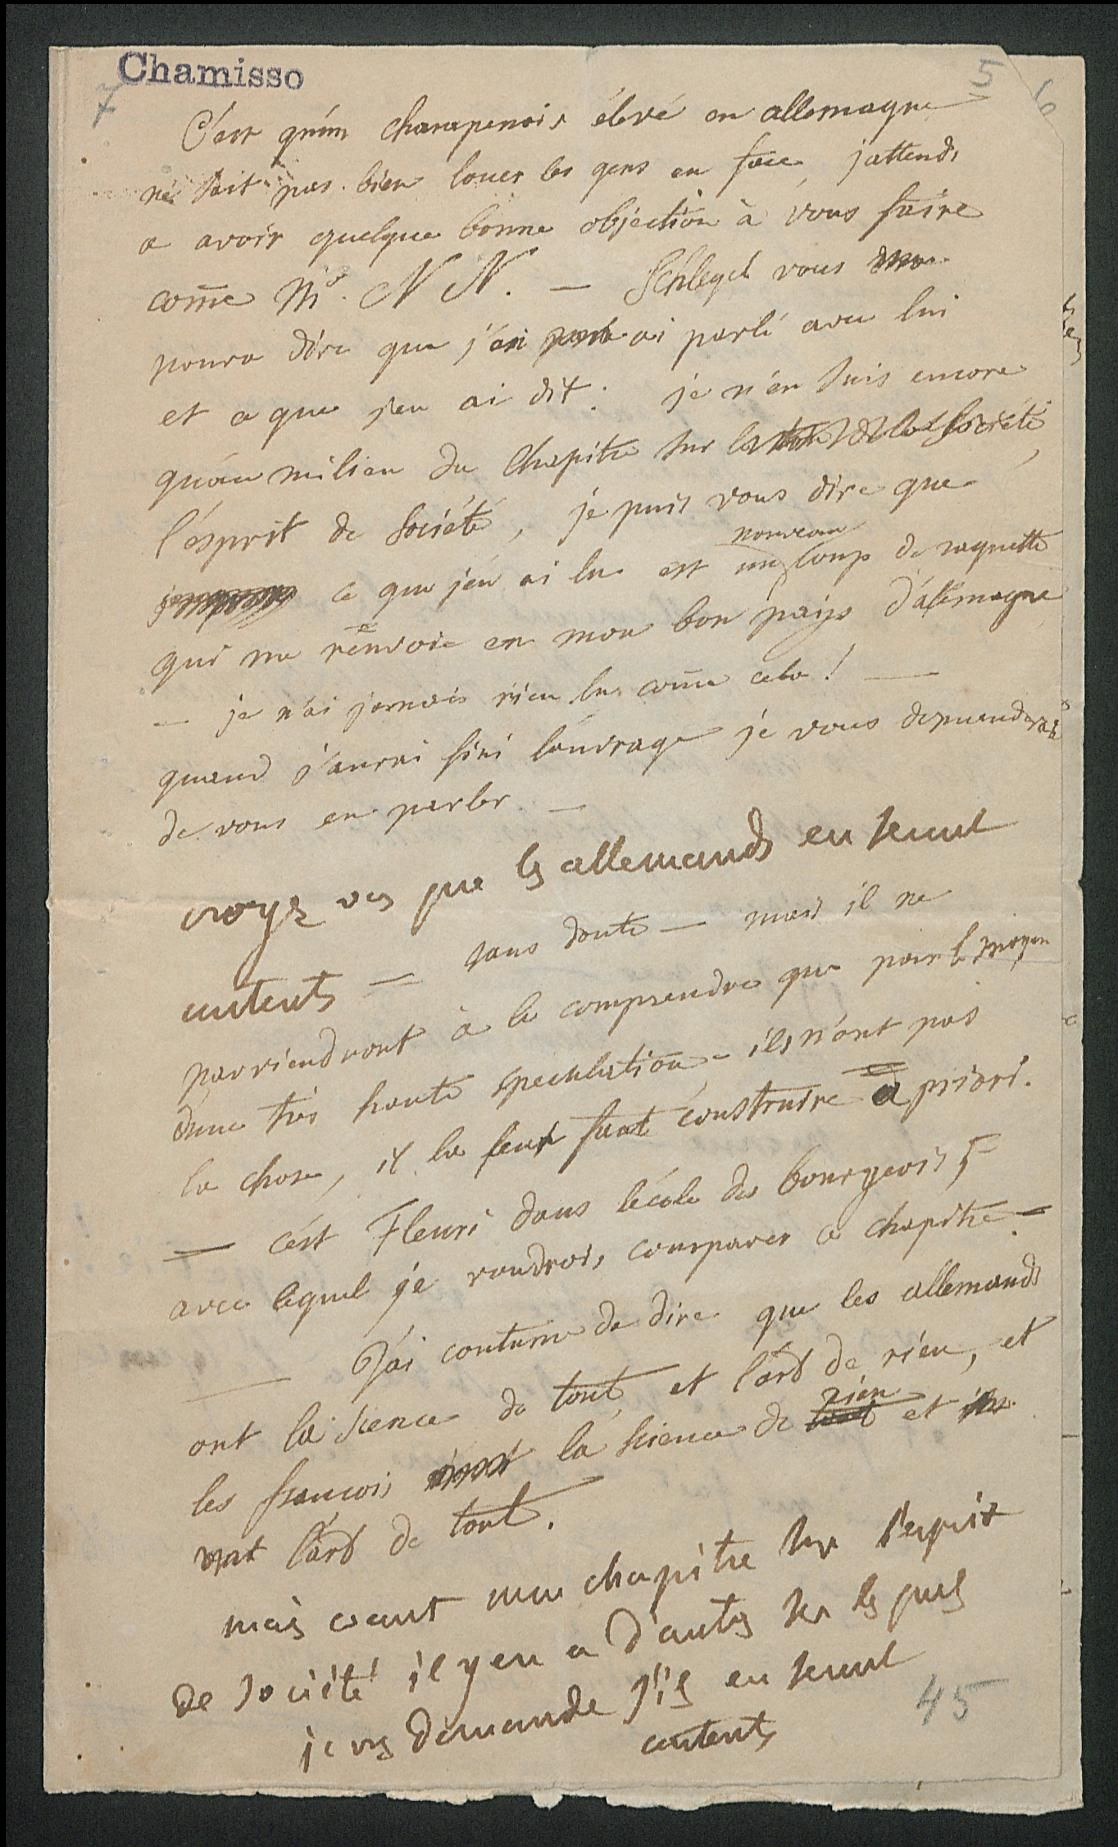 Chamisso
7
5
6
C'est qu'un champenois élevé en allemagne
ne sait pas bien louer les gens en face, j'attends
a avoir quelque bonne objection à vous faire
come Mr. N N. — Schlegel vous
poura dire que j'en ai parlé avec lui
et ce que j'en ai dit. je n'en suis encore
qu'au milieu du chapitre sur la Société,
l'ésprit de Société, je puis vous dire que
ce que j'en ai lu est un nouveau coup de raquette
qui me renvoie en mon bon païs d'allemagne
— je n'ai jamais rien lu come cela! —
quand j'aurai fini l'ouvrage je vous demanderai
de vous en parler. —
croyez vs que les allemands en seront
contents — sans doute — mais il ne
parviendront à le comprendre que par le moyen
d'une très haute speculation — ils n'ont pas
la chose, il la leur faut construire a priori.
— c'ést Fleuri dans l'école des bourgeois
avec lequel je voudrois comparer ce chapitre —
— J'ai coutume de dire que les allemands
ont la sience de tout et l'art de rien, et
les francois la sience de rien et
ont l'art de tout.
mais avant mon chapitre sur l'esprit
de société il y en a d'autres sur les quels
je vs demande s'ils en seront
contents
45